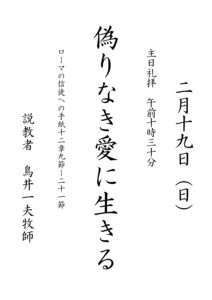 二月十九日（日）
主日礼拝　午前十時三十分
偽りなき愛に生きる
ローマの信徒への手紙十二章九節ー二十一節
説教者　鳥井一夫牧師